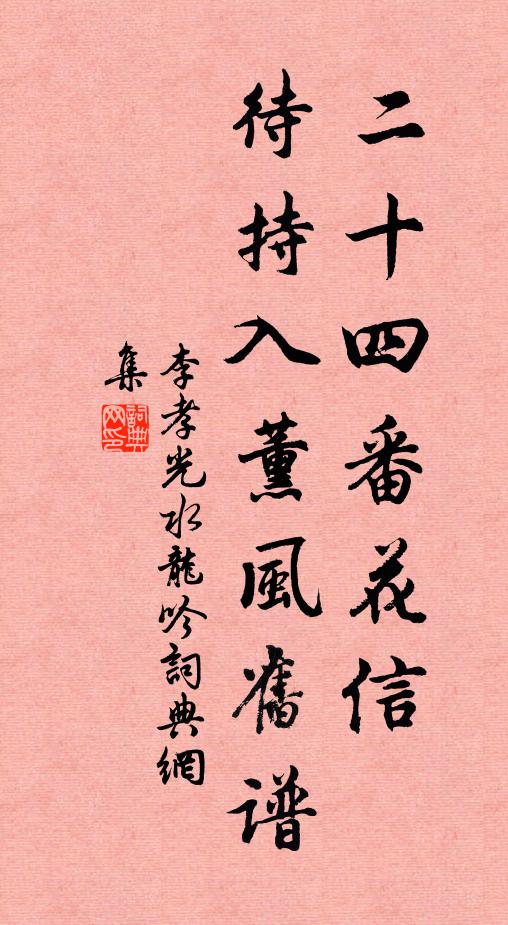 二十四番花信
待持入薰風舊譜
李孝光水龍吟詞典網
集
詞典網印